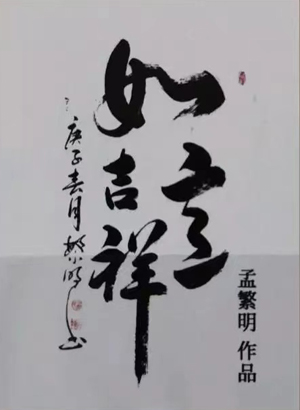 如意
吉祥
庚子春月繁明
孟繁明 作品